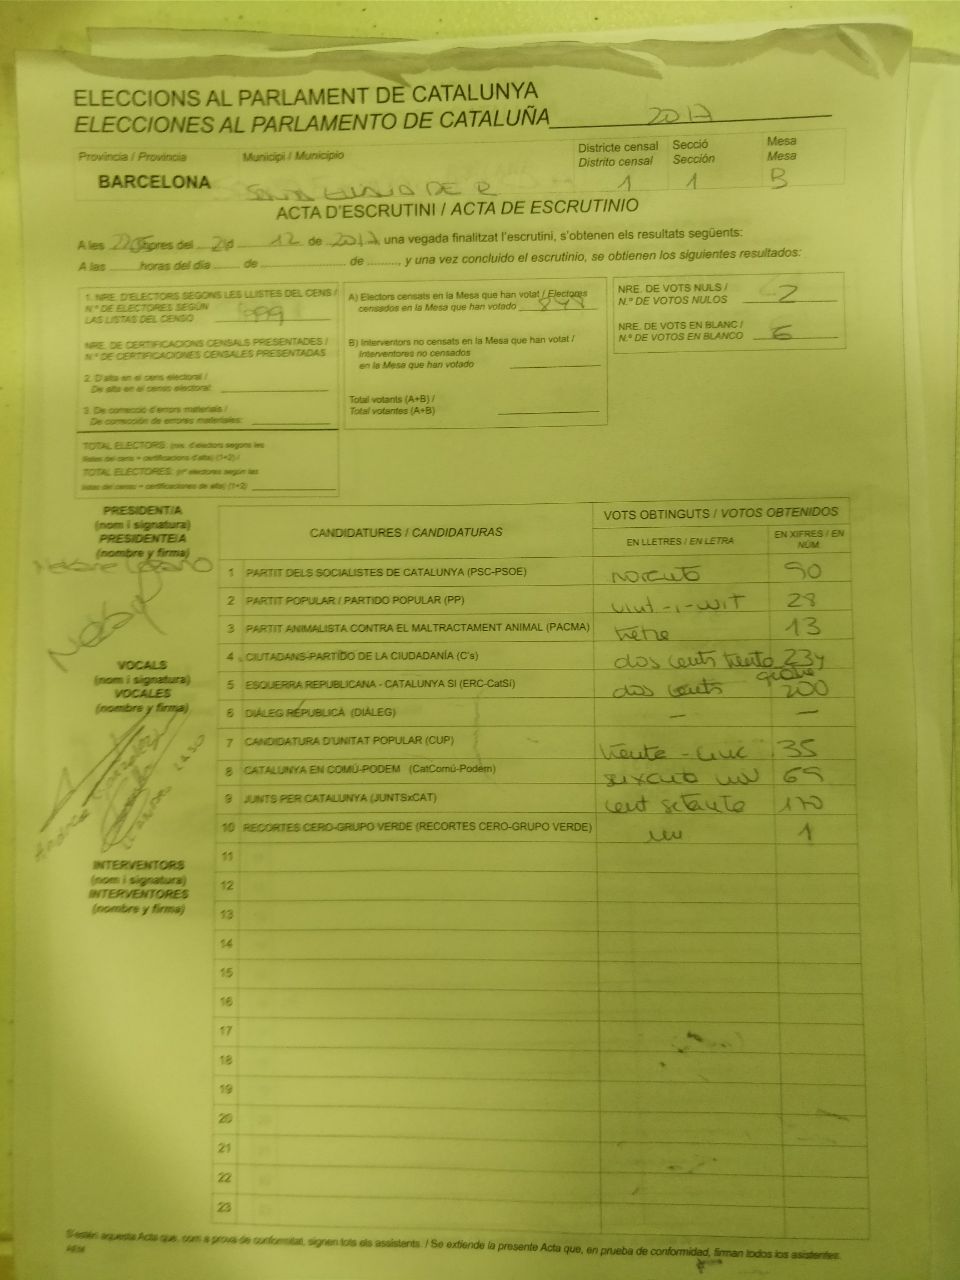 ELECCIONS AL PARLAMENT DE CATALUNYA
ELECCIONES AL PARLAMENTO DE CATALUÑA 2017
Provincia / Provincia Municipi / Municipio Districte censal / Distrito censal Secció / Sección Mesa / Mesa
BARCELONA DE R 1 1 B
ACTA D'ESCRUTINI / ACTA DE ESCRUTINIO
A les hores del 21 d 12 de 2017, una vegada finalitzat l'escrutini, s'obtenen els resultats següents:
A las horas del día de de, y una vez concluido el escrutinio, se obtienen los siguientes resultados:
1. NRE. D'ELECTORS SEGONS LES LLISTES DEL CENS /
N.º DE ELECTORES SEGÚN
LAS LISTAS DEL CENSO 999
NRE. DE CERTIFICACIONS CENSALS PRESENTADES /
N.º DE CERTIFICACIONES CENSALES PRESENTADAS
2. D'alta en el cens electoral /
De alta en el censo electoral:
3. De correcció d'errors materials /
De corrección de errores materiales:
TOTAL ELECTORS: (nre. d'electors segons les
llistes del cens + certificacions d'alta) (1+2) /
TOTAL ELECTORES: (nº electores según las
listas del censo + certificaciones de alta) (1+2)
A) Electors censats en la Mesa que han votat / Electores
censados en la Mesa que han votado
B) Interventors no censats en la Mesa que han votat /
Interventores no censados
en la Mesa que han votado
Total votants (A+B) /
Total votantes (A+B)
NRE. DE VOTS NULS /
N.º DE VOTOS NULOS 2
NRE. DE VOTS EN BLANC /
N.º DE VOTOS EN BLANCO 6
PRESIDENT/A
(nom i signatura)
PRESIDENTE/A
(nombre y firma)
VOCALS
(nom i signatura)
VOCALES
(nombre y firma)
INTERVENTORS
(nom i signatura)
INTERVENTORES
(nombre y firma)
CANDIDATURES / CANDIDATURAS VOTS OBTINGUTS / VOTOS OBTENIDOS
EN LLETRES / EN LETRA EN XIFRES / EN NÚM.
1 PARTIT DELS SOCIALISTES DE CATALUNYA (PSC-PSOE) noranta 90
2 PARTIT POPULAR / PARTIDO POPULAR (PP) vint-i-vuit 28
3 PARTIT ANIMALISTA CONTRA EL MALTRACTAMENT ANIMAL (PACMA) tretze 13
4 CIUTADANS-PARTIDO DE LA CIUDADANÍA (C's) dos cents trenta quatre 234
5 ESQUERRA REPUBLICANA - CATALUNYA SÍ (ERC-CatSí) dos cents 200
6 DIÀLEG REPUBLICÀ (DIÀLEG) — —
7 CANDIDATURA D'UNITAT POPULAR (CUP) trenta-cinc 35
8 CATALUNYA EN COMÚ-PODEM (CatComú-Podem) seixanta
9 JUNTS PER CATALUNYA (JUNTSxCAT) cent setanta 170
10 RECORTES CERO-GRUPO VERDE (RECORTES CERO-GRUPO VERDE) un 1
11
12
13
14
15
16
17
18
19
20
21
22
23
S'estén aquesta Acta que, com a prova de conformitat, signen tots els assistents. / Se extiende la presente Acta que, en prueba de conformidad, firman todos los asistentes.